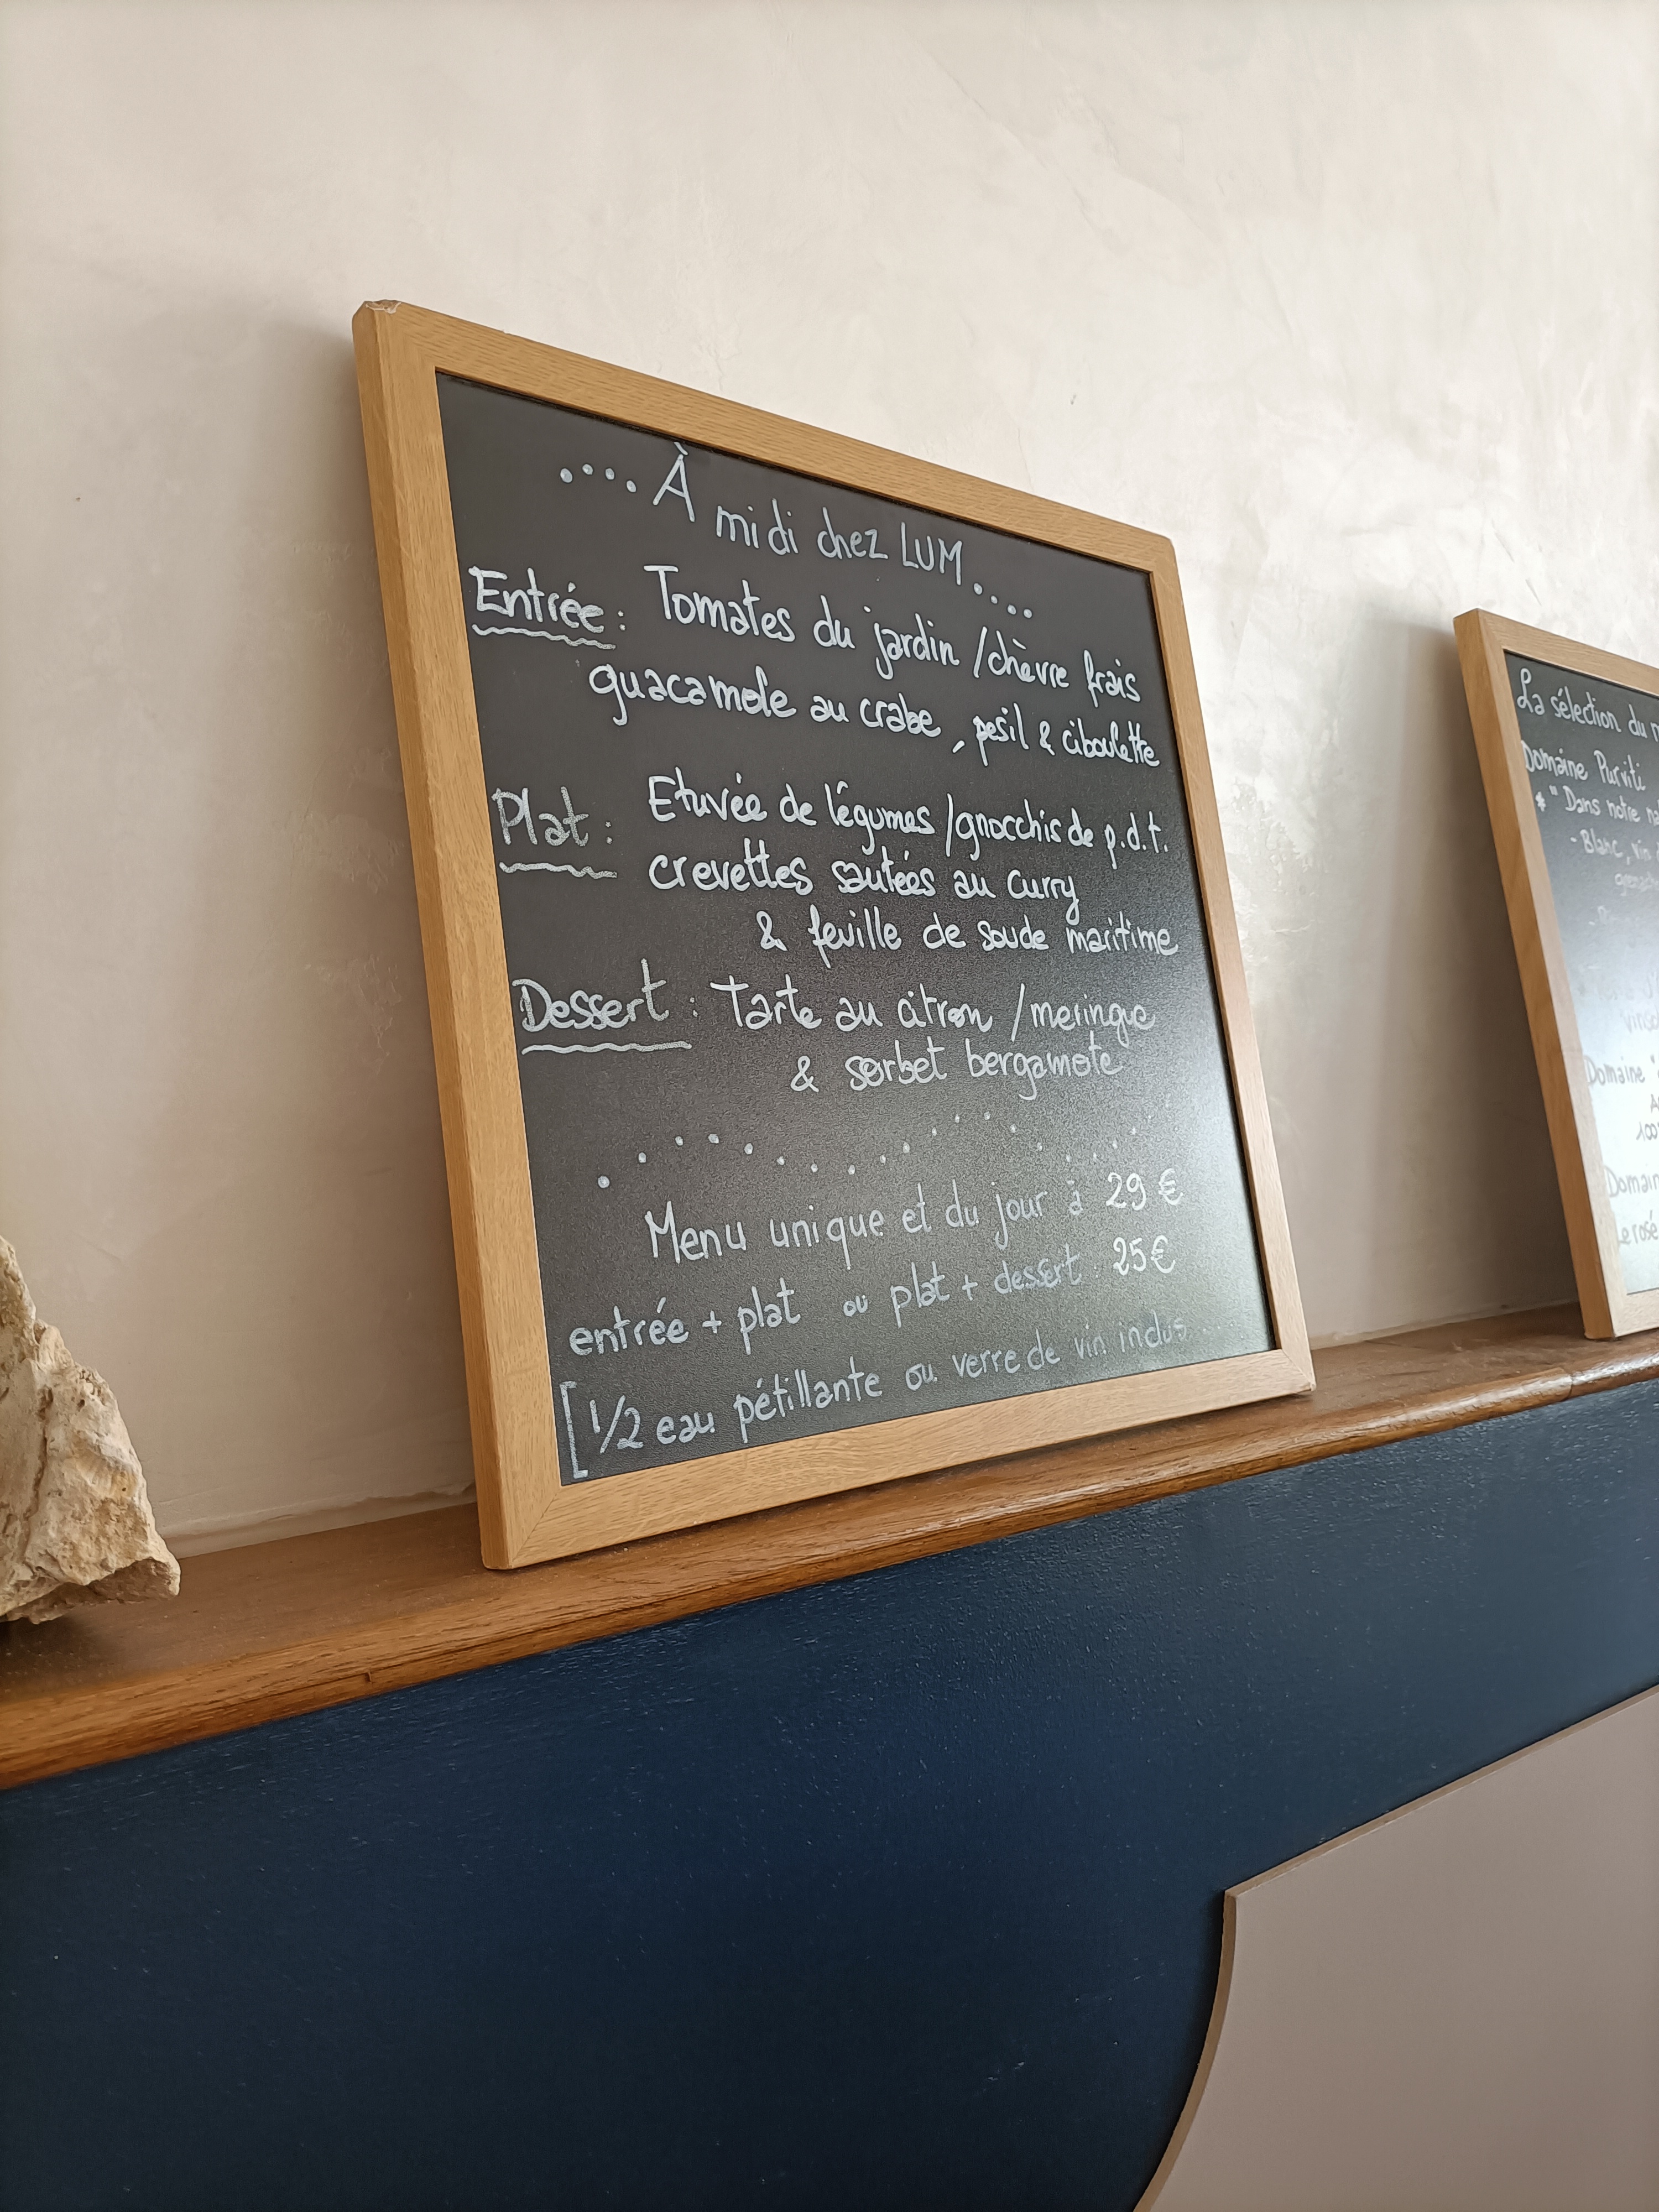 .... À midi chez LUM ....
Entrée : Tomates du jardin / chèvre frais
guacamole au crabe, pesil & ciboulette
Plat : Etuvée de légumes / gnocchis de p.d.t.
crevettes sautées au curry
& feuille de soude maritime
Dessert : Tarte au citron / meringue
& sorbet bergamote
Menu unique et du jour à 29 €
entrée + plat ou plat + dessert : 25 €
[ 1/2 eau pétillante ou verre de vin inclus ....
La sélection du
Domaine Purviti
* "Dans notre
- Blanc, vin
Domaine
100
Domain
Le rosé